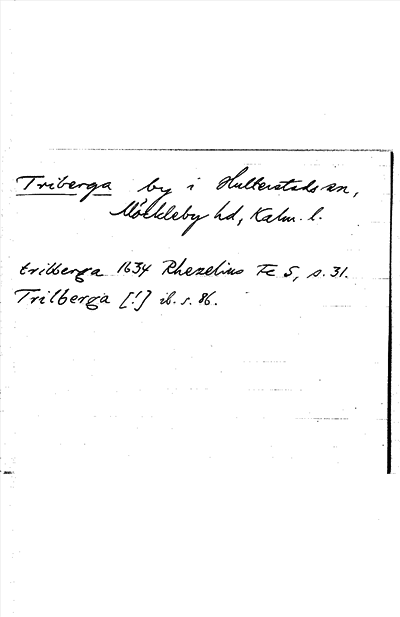 Triberga by i Hulterstads sn,
Möckleby hd, Kalm. l.
trilberga 1634 Rhezelius Fc 5, s. 31.
Trilberga [!] ib. s. 86.